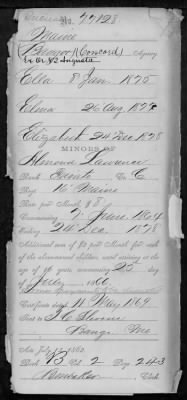 No. 77128
Maine
Bangor (Concord) Agency
Ella 8 Jan 1875
Elma 26 Aug 1878
Elizabeth 24 Dec 1878
MINORS OF
Almona Lawrence
Rank Co. C
Regt 16 Maine
Rate per Month, $8
Commencing 2 June 1864
Ending 24 Dec 1878
Additional sum of $2 per Month for each of
the abovenamed children, until arriving at the
age of 16 years, commencing 25 day
of July 1866
Certificate dated 11 May 1869
Sent to
Bangor Me
Act July 14, 1862
Book B Vol. 2 Page 243
Clerk